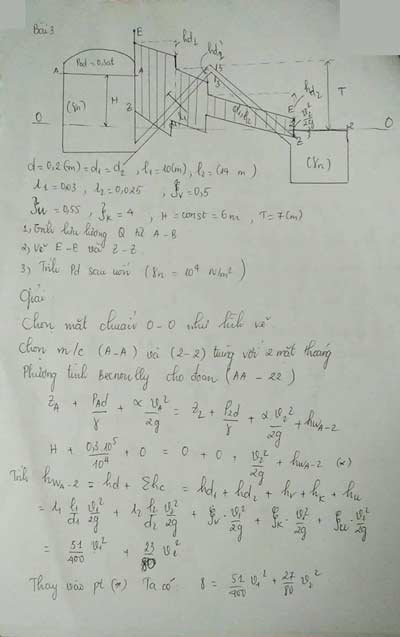 Bài 3
E
hd1
hd2
Pad = 0,3at
A
A
(γn)
H
Z
T
E
Z
2
0
0
(γn)
d = 0,2 (m) = d1 = d2, l1 = 10(m), l2 = (14 m)
λ1 = 0,03, λ2 = 0,025, ξv = 0,5
ξu = 0,55, ξK = 4, H = const = 6m, T = 7(m)
1) Tính lưu lượng Q từ A - B
2) Vẽ E-E và Z-Z
3) Tính Pd sau uốn (γn = 10⁴ N/m²)
Giải
Chọn mặt chuẩn 0-0 như hình vẽ
Chọn m/c (A-A) và (2-2) trùng với 2 mặt thoáng
Phương tình Becnoully cho đoạn (AA - 22)
ZA + PAd/γ + αvA²/2g = Z2 + P2d/γ + αv2²/2g + hwA-2
H + 0,3.10⁵/10⁴ + 0 = 0 + 0 + v2²/2g + hwA-2 (*)
Tính hwA-2 = hd + Σhc = hd1 + hd2 + hv + hK + hu
= λ1 l1/d1 v1²/2g + λ2 l2/d2 v2²/2g + ξv v1²/2g + ξK v2²/2g + ξu v2²/2g
= 51/400 v1² + 23/80 v2²
Thay vào pt (*) Ta có 8 = 51/400 v1² + 27/80 v2²